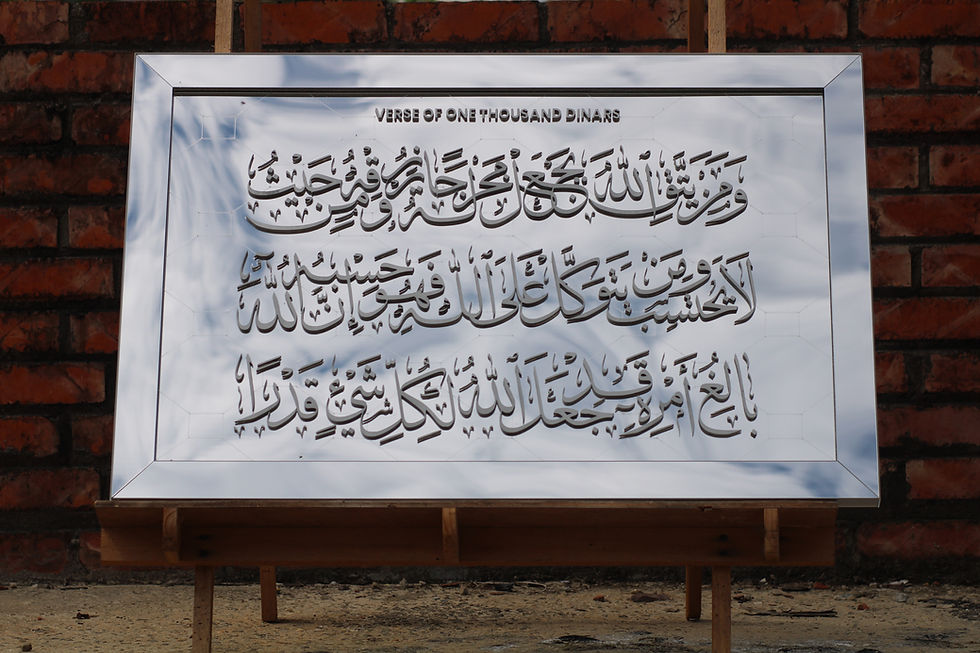 VERSE OF ONE THOUSAND DINARS
وَمَنْ يَتَّقِ اللهَ يَجْعَلْ لَهُ مَخْرَجًا وَيَرْزُقْهُ مِنْ حَيْثُ
لَا يَحْتَسِبُ وَمَنْ يَتَوَكَّلْ عَلَى اللهِ فَهُوَ حَسْبُهُ إِنَّ اللهَ
بَالِغُ أَمْرِهِ قَدْ جَعَلَ اللهُ لِكُلِّ شَيْءٍ قَدْرًا